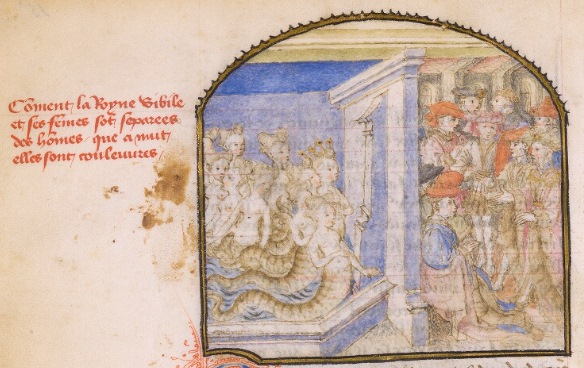 Cōment la Royne Sibile
et ses fēmes sōt separees
des hōmes que a nuit
elles sont couleuures